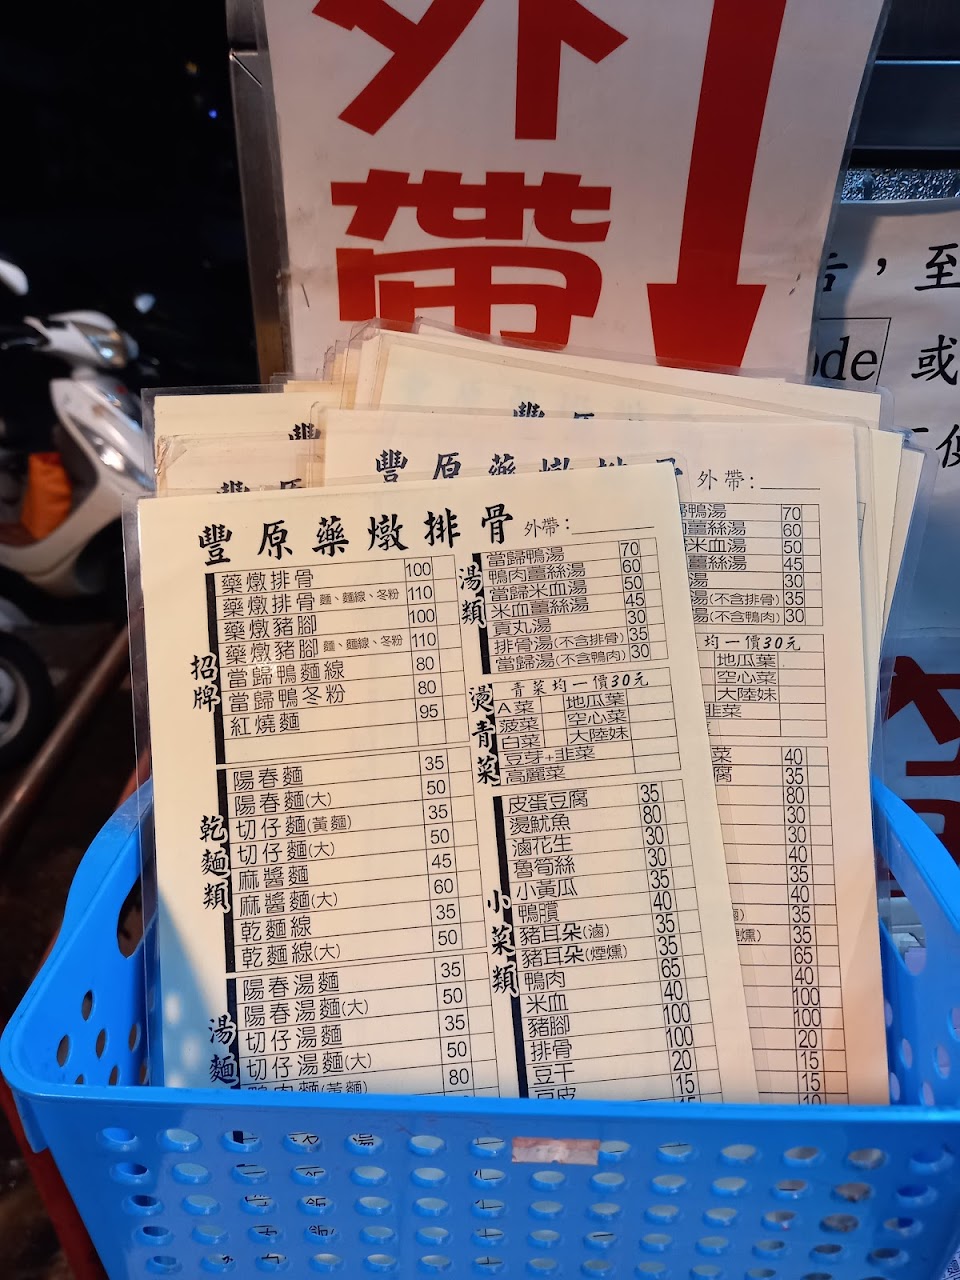 外
帶
至
ode 或
豐原藥燉排骨 外帶：
豐原藥燉排骨 外帶：
招牌
藥燉排骨 100
藥燉排骨 麵、麵線、冬粉 110
藥燉豬腳 100
藥燉豬腳 麵、麵線、冬粉 110
當歸鴨麵線 80
當歸鴨冬粉 80
紅燒麵 95
乾麵類
陽春麵 35
陽春麵(大) 50
切仔麵(黃麵) 35
切仔麵(大) 50
麻醬麵 45
麻醬麵(大) 60
乾麵線 35
乾麵線(大) 50
湯麵
陽春湯麵 35
陽春湯麵(大) 50
切仔湯麵 35
切仔湯麵(大) 50
鴨肉麵(黃麵) 80
湯類
當歸鴨湯 70
鴨肉薑絲湯 60
當歸米血湯 50
米血薑絲湯 45
貢丸湯 30
排骨湯(不含排骨) 35
當歸湯(不含鴨肉) 30
燙青菜
青菜均一價30元
A菜 地瓜葉
菠菜 空心菜
白菜 大陸妹
豆芽+韭菜
高麗菜
小菜類
皮蛋豆腐 35
燙魷魚 80
滷花生 30
魯筍絲 30
小黃瓜 35
鴨𦞂 40
豬耳朵(滷) 35
豬耳朵(煙燻) 35
鴨肉 65
米血 40
豬腳 100
排骨 100
豆干 20
豆皮 15
鴨湯 70
薑絲湯 60
米血湯 50
薑絲湯 45
湯 30
湯(不含排骨) 35
湯(不含鴨肉) 30
均一價30元
地瓜葉
空心菜
大陸妹
韭菜
菜 40
腐 35
80
30
30
40
35
35
65
40
100
100
20
15
15